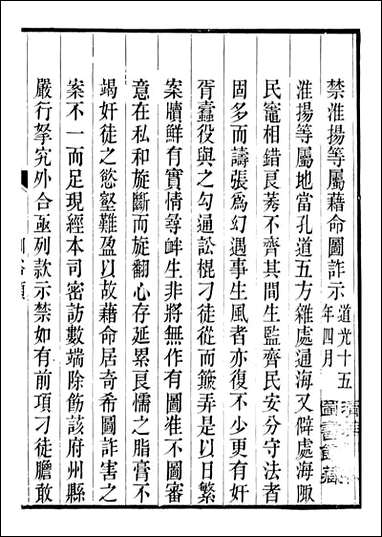 禁淮揚等屬藉命圖詐示道光十五年四月
淮揚等屬地當孔道五方雜處通海又僻處海陬
民竈相錯良莠不齊其間生監齊民安分守法者
固多而譸張為幻遇事生風者亦復不少更有奸
胥蠹役與之勾通訟棍刁徒從而簸弄是以日繁
案牘鮮有實情尋衅生非將無作有圖准不圖審
意在私和旋斷而旋翻心存延累良懦之脂膏不
竭奸徒之慾壑難盈以故藉命居奇希圖詐害之
案不一而足現經本司密訪數端除飭該府州縣
嚴行拏究外合亟列款示禁如有前項刁徒膽敢
圖書館藏